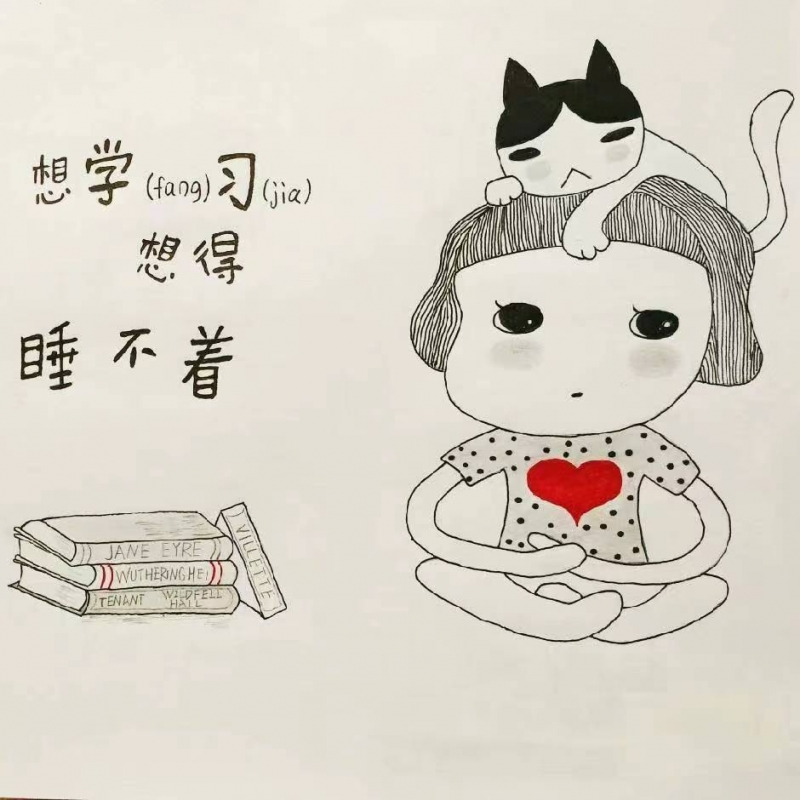 想学(fang)习(jia)
想得
睡不着
JANE EYRE
WUTHERING HEI
TENANT WILDFELL
HALL
VILLETTE